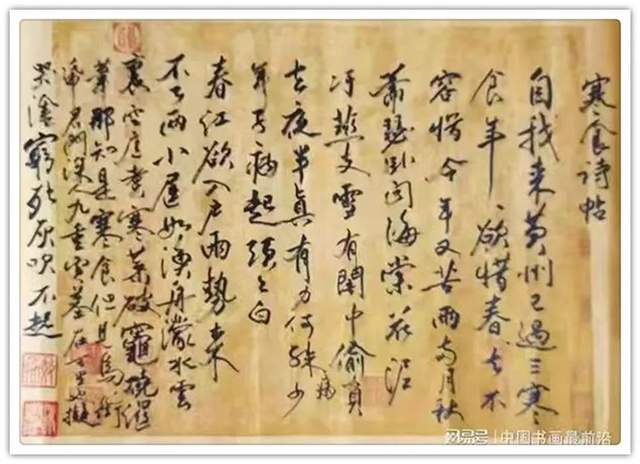 寒食诗帖
自我来黄州已过三寒
食年、欲惜春去不
容惜今年又苦雨两月秋
萧瑟卧闻海棠花泥
汙燕支雪有閒中偷負
去夜半真有力何殊少
病
年子病起頭已白
春江欲入户雨勢来
不已雨小屋如渔舟濛水雲
裏空庖煮寒菜破竈燒濕
葦那知是寒食但見烏銜
帋君門深九重墳墓在万里也擬
哭塗窮死灰吹不起
网易号 | 中国书画最前沿